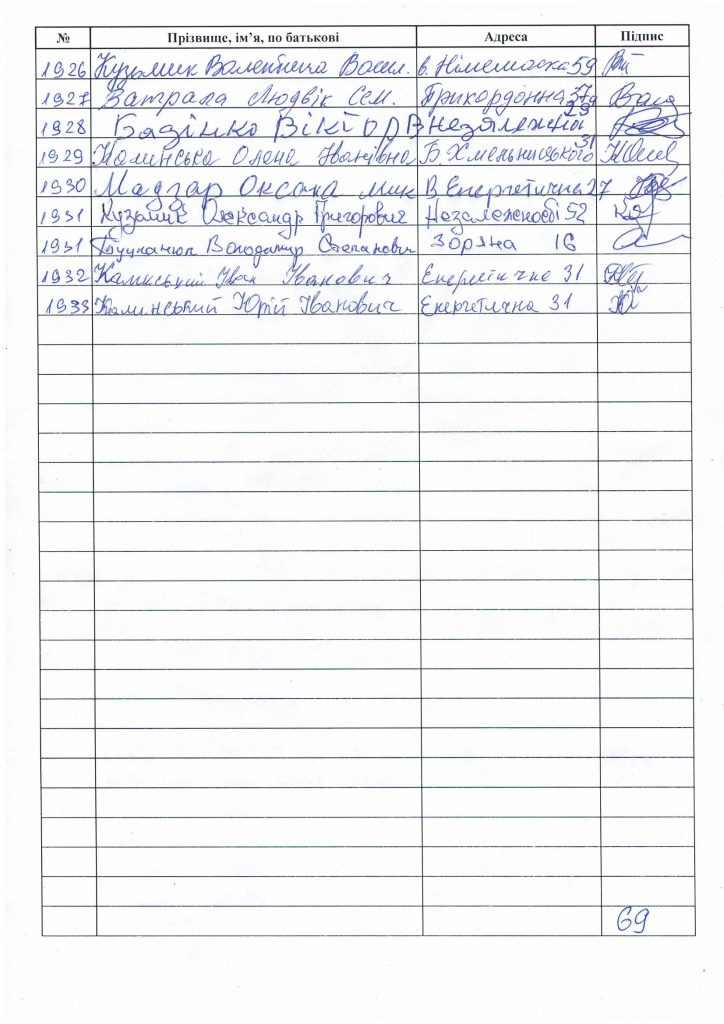 № Прізвище, ім’я, по батькові Адреса Підпис
1926 Кузьмик Валентина Васил. 59
1927 Ватрала Людвік Сем. Прикордонна 37
1928 Бязінко Віктор В Незялежнос 29
1929 Каминська Олена Іванівна Б. Хмельницького 31
1930 Мадзар Оксана мик В Енергетична 27
1931 Кузьмик Олександр Григорович Незалежності 52
1931 Володимир Степанович Зоряна 16
1932 Каминський Іван Іванович Енергетична 31
1933 Каминський Юрій Іванович Енергетична 31
69